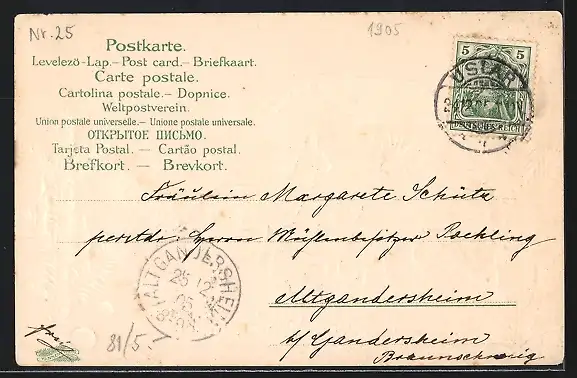 Nr. 25
1905
Postkarte.
Levelező-Lap. – Post card. – Briefkaart.
Carte postale.
Cartolina postale. – Dopnice.
Weltpostverein.
Union postale universelle. – Unione postale universale.
ОТКРЫТОЕ ПИСЬМО.
Tarjeta Postal. — Cartão postal.
Brefkort. — Brevkort.
5 5
USLAR
DEUTSCHES REICH
Fräulein Margarete Schütz
Herrn Mühlenbesitzer Päckling
Altgandersheim
b/ Gandersheim
Braunschweig
ALTGANDERSHEIM
25 12
05
frei
81/5.-